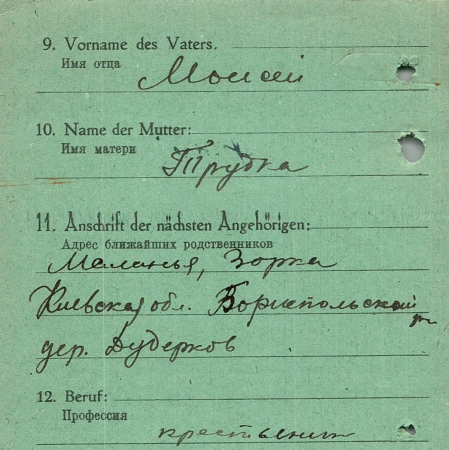 9. Vorname des Vaters.
Имя отца
Моисей
10. Name der Mutter:
Имя матери
Трубка
11. Anschrift der nächsten Angehörigen:
Адрес ближайших родственников
Меланья, Зорка
Киевская обл. Бориспольский
дер. Дудерков
12. Beruf:
Профессия
крестьянин